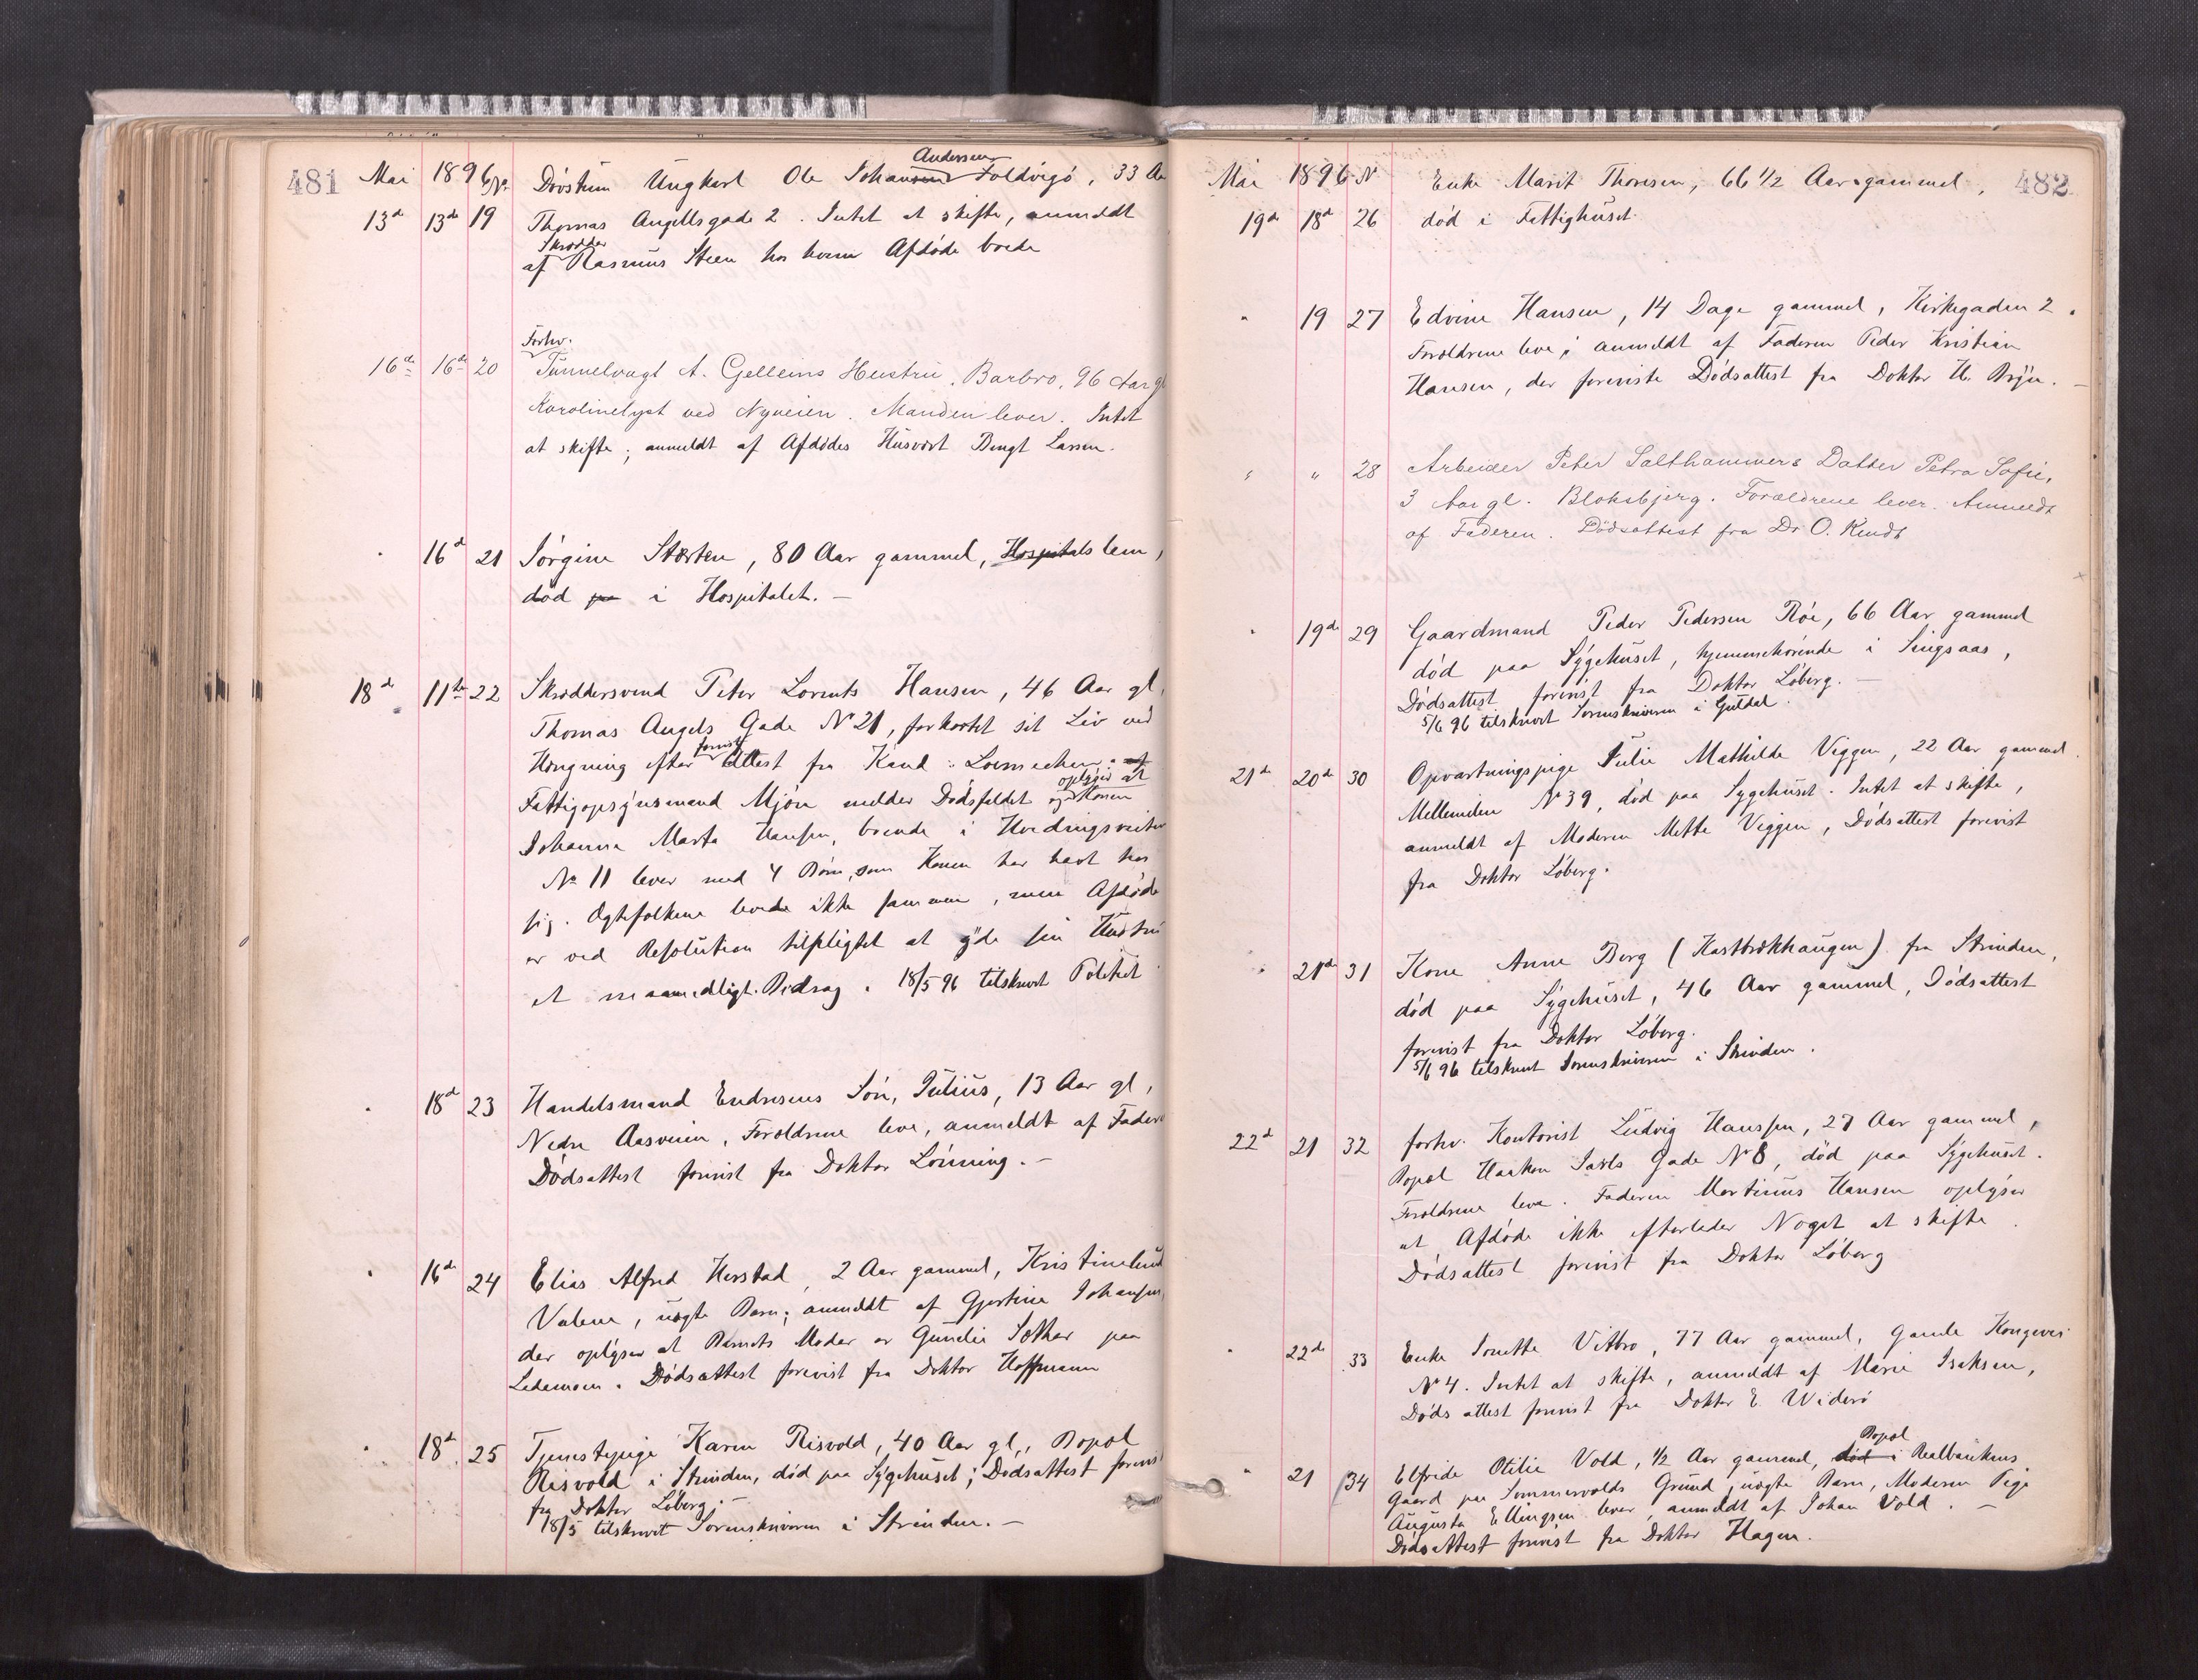 481 Mai 1896 No. Døvstum Ungkarl Ole Johansen Andersen Foldvigø, 33 Aa
13de 13de 19 Thomas Angellsgade 2. Intet at skifte, anmeldt
af Skrædder Rasmus Steen hos hvem Afdøde boede
Forhv.
16de 16de 20 Tunnelvagt A. Gelleins Hustru, Barbro, 96 Aar gl
Karolinelyst ved Nyveien. Manden lever. Intet
at skifte; anmeldt af Afdødes Husvært Bengt Larsen.
" 16d 21 Jørgine Størten, 80 Aar gammel, Hospitalslem,
død paa i Hospitalet. —
18de 11te 22 Skræddersvend Peter Lorents Hansen, 46 Aar gl,
Thomas Angels Gade No 21, forkortet sit Liv ved
Hængning efter forevist Attest fra Kand: af
Fattigopsynsmand Mjøen melder Dødsfaldet og oplyser at Konen
Johanna Marta Hansen, boende i
No 11 lever med 4 Børn, som Konen har havt hos
sig. Ægtefolkene levede ikke sammen, men Afdøde
er ved Resolution tilpligtet at yde sin Hustru
et maanedligt Bidrag. 18/5 96 tilskrevet Politiet
" 18d 23 Handelsmand Endresens Søn, Julius, 13 Aar gl,
Nedre Aasveien, Forældrene leve, anmeldt af Fader
Dødsattest forevist fra Doktor Lønning. —
" 16de 24 Elias Alfred Herstad, 2 Aar gammel, Kristinelund
Valene, uægte Barn; anmeldt af Gjertine Johansen,
der oplyser at Barnets Moder er Gunelie Solhar paa
Ledemoen. Dødsattest forevist fra Doktor Hoffmann
" 18d 25 Tjenestepige Karen Risvold, 40 Aar gl., Bopæl
Risvold i Strinden, død paa Sygehuset; Dødsattest forevist
fra Doktor Løberg. —
18/5 tilskrevet Sorenskriveren i Strinden. —
Mai 1896 N Enke Marit Thoresen, 66 1/2 Aar gammel, 482
19de 18d 26 død i Fattighuset.
" 19 27 Edvine Hansen, 14 Dage gammel, Kirkegaden 2.
Forældrene leve; anmeldt af Faderen Peder Kristian
Hansen, der foreviste Dødsattest fra Doktor H. Bryn. —
" " 28 Arbeider Peter Salthammers Datter Petra Sofie,
3 Aar gl. Bloksbjerg. Forældrene lever. Anmeldt
af Faderen. Dødsattest fra Dr O. Kindt
" 19de 29 Gaardmand Peder Pedersen Røe, 66 Aar gammel
død paa Sygehuset, hjemmehørende i Singsaas,
Dødsattest forevist fra Doktor Løberg. —
5/6 96 tilskrevet Sorenskriveren i Guldal.
21de 20de 30 Opvartningspige Julie Mathilde Viggen, 22 Aar gammel.
Mellemilen No 39, død paa Sygehuset. Intet at skifte,
anmeldt af Moderen Mette Viggen, Dødsattest forevist
fra Doktor Løberg.
" 21de 31 Kone Anne Berg (Hastbrækhaugen) fra Strinden,
død paa Sygehuset, 46 Aar gammel, Dødsattest
forevist fra Doktor Løberg.
5/6 96 tilskrevet Sorenskriveren i Strinden.
22d 21 32 forhv. Kontorist Ludvig Hanssen, 27 Aar gammel,
Bopæl Haakon Jarls Gade No 8, død paa Sygehuset.
Forældrene leve. Faderen Martinus Hansen oplyser
at Afdøde ikke efterlader Noget at skifte.
Dødsattest forevist fra Doktor Løberg
" 22de 33 Enke Jonette Vitbro, 77 Aar gammel, Gamle Kongevei
No 4. Intet at skifte, anmeldt af Marie Isaksen,
Dødsattest forevist fra Doktor E. Widerø
" 21 34 Elfride Otilie Vold, 1/2 Aar gammel, død i Bopæl Realbankens
Gaard paa Sommervolds Grund, uægte Barn, Moderen Pige
Augusta Ellingsen lever, anmeldt af Johan Vold. —
Dødsattest forevist fra Doktor Hagen.